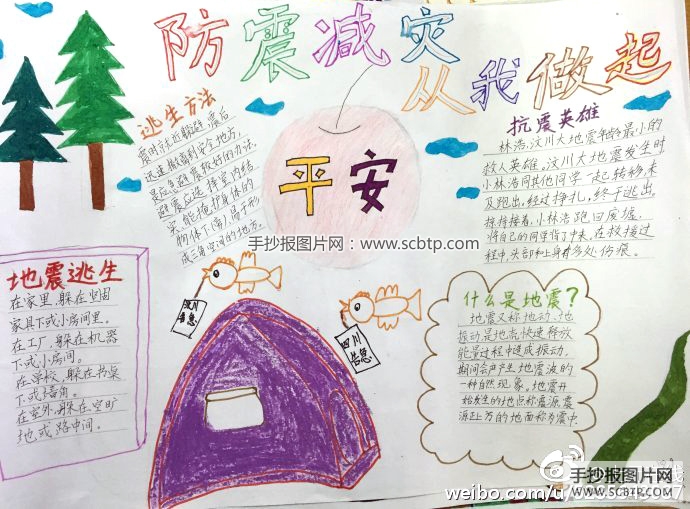 防震减灾
从我做起
逃生方法
震时就近躲避,震后
迅速撤离到安全地方,
是应急避震较好的办法.
避震应选择室内结
实、能掩护身体的
物体下(旁)、易于形
成三角空间的地方.
平安
抗震英雄
林浩,汶川大地震年龄最小的
救人英雄。汶川大地震发生时
小林浩同其他同学一起转移,未
及跑出,经过挣扎,终于逃出.
小林浩跑回废墟,
将自己的同学背了出来,在救援过
程中,头部和上身有多处伤痕。
手抄报图片网 www.scbtp.com
地震逃生
在家里,躲在坚固
家具下或小房间里。
在工厂,躲在机器
下或小房间。
在学校,躲在书桌
下或墙角。
在室外,躲在空旷
地,或路中间。
汶川
告急
四川
告急
什么是地震?
地震又称地动、地
振动,是地壳快速释放
能量过程中造成振动,
期间会产生地震波的
一种自然现象。地震开
始发生的地点称震源,震
源正上方的地面称为震中.
手抄报图片网
WWW.SCBTP.COM
weibo.com/u/